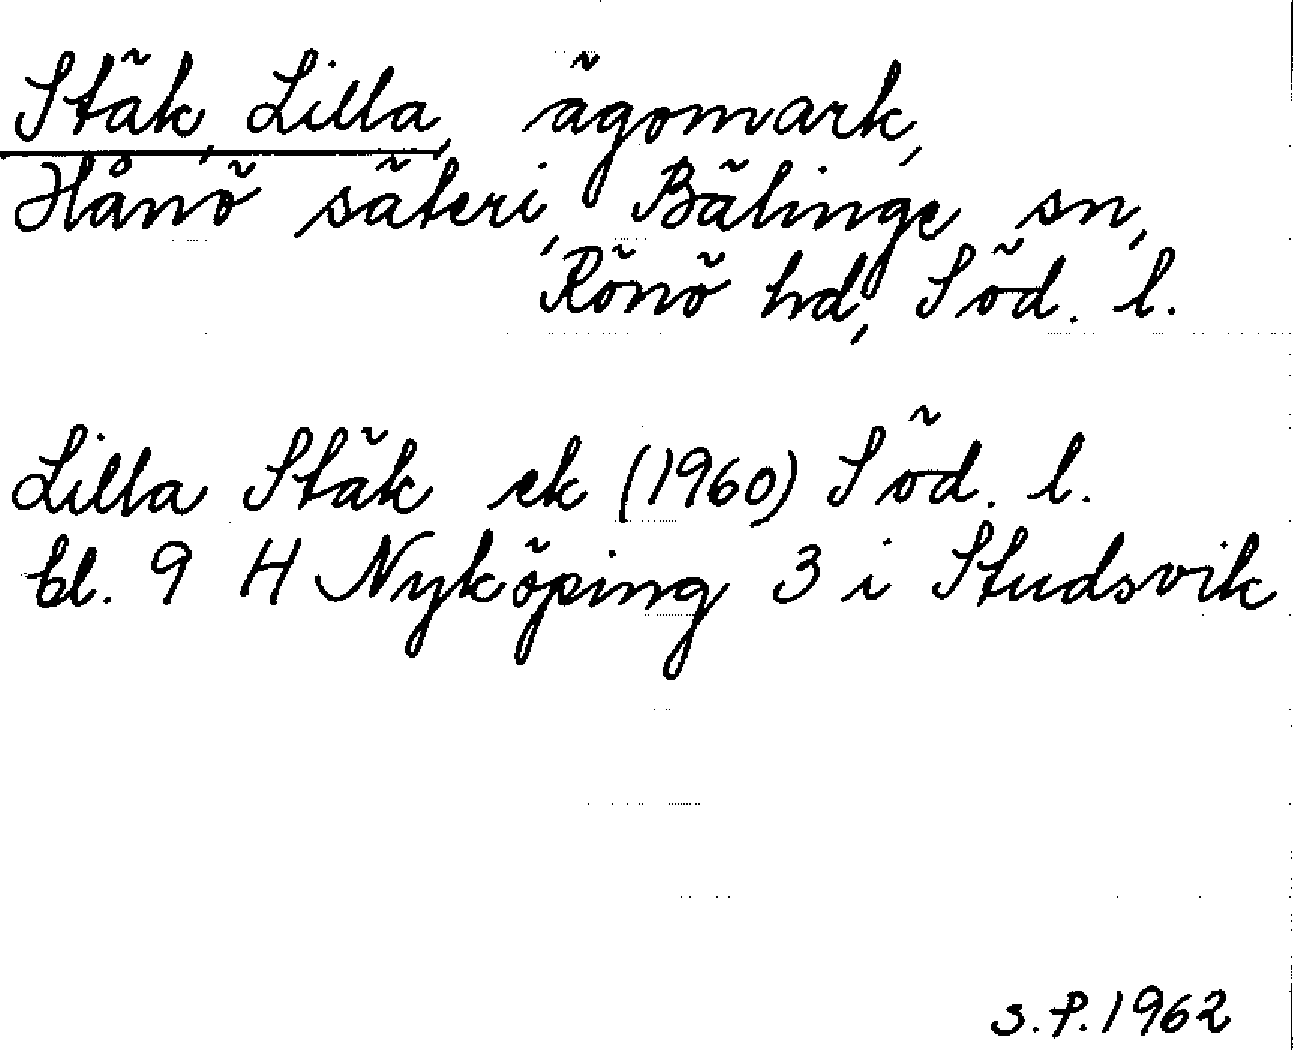 Stäk, Lilla, ägomark,
Hånö säteri, Bälinge sn,
Rönö hd, Söd. l.
Lilla Stäk ek (1960) Söd. l.
bl. 9 H Nyköping 3 i Studsvik
S.P. 1962